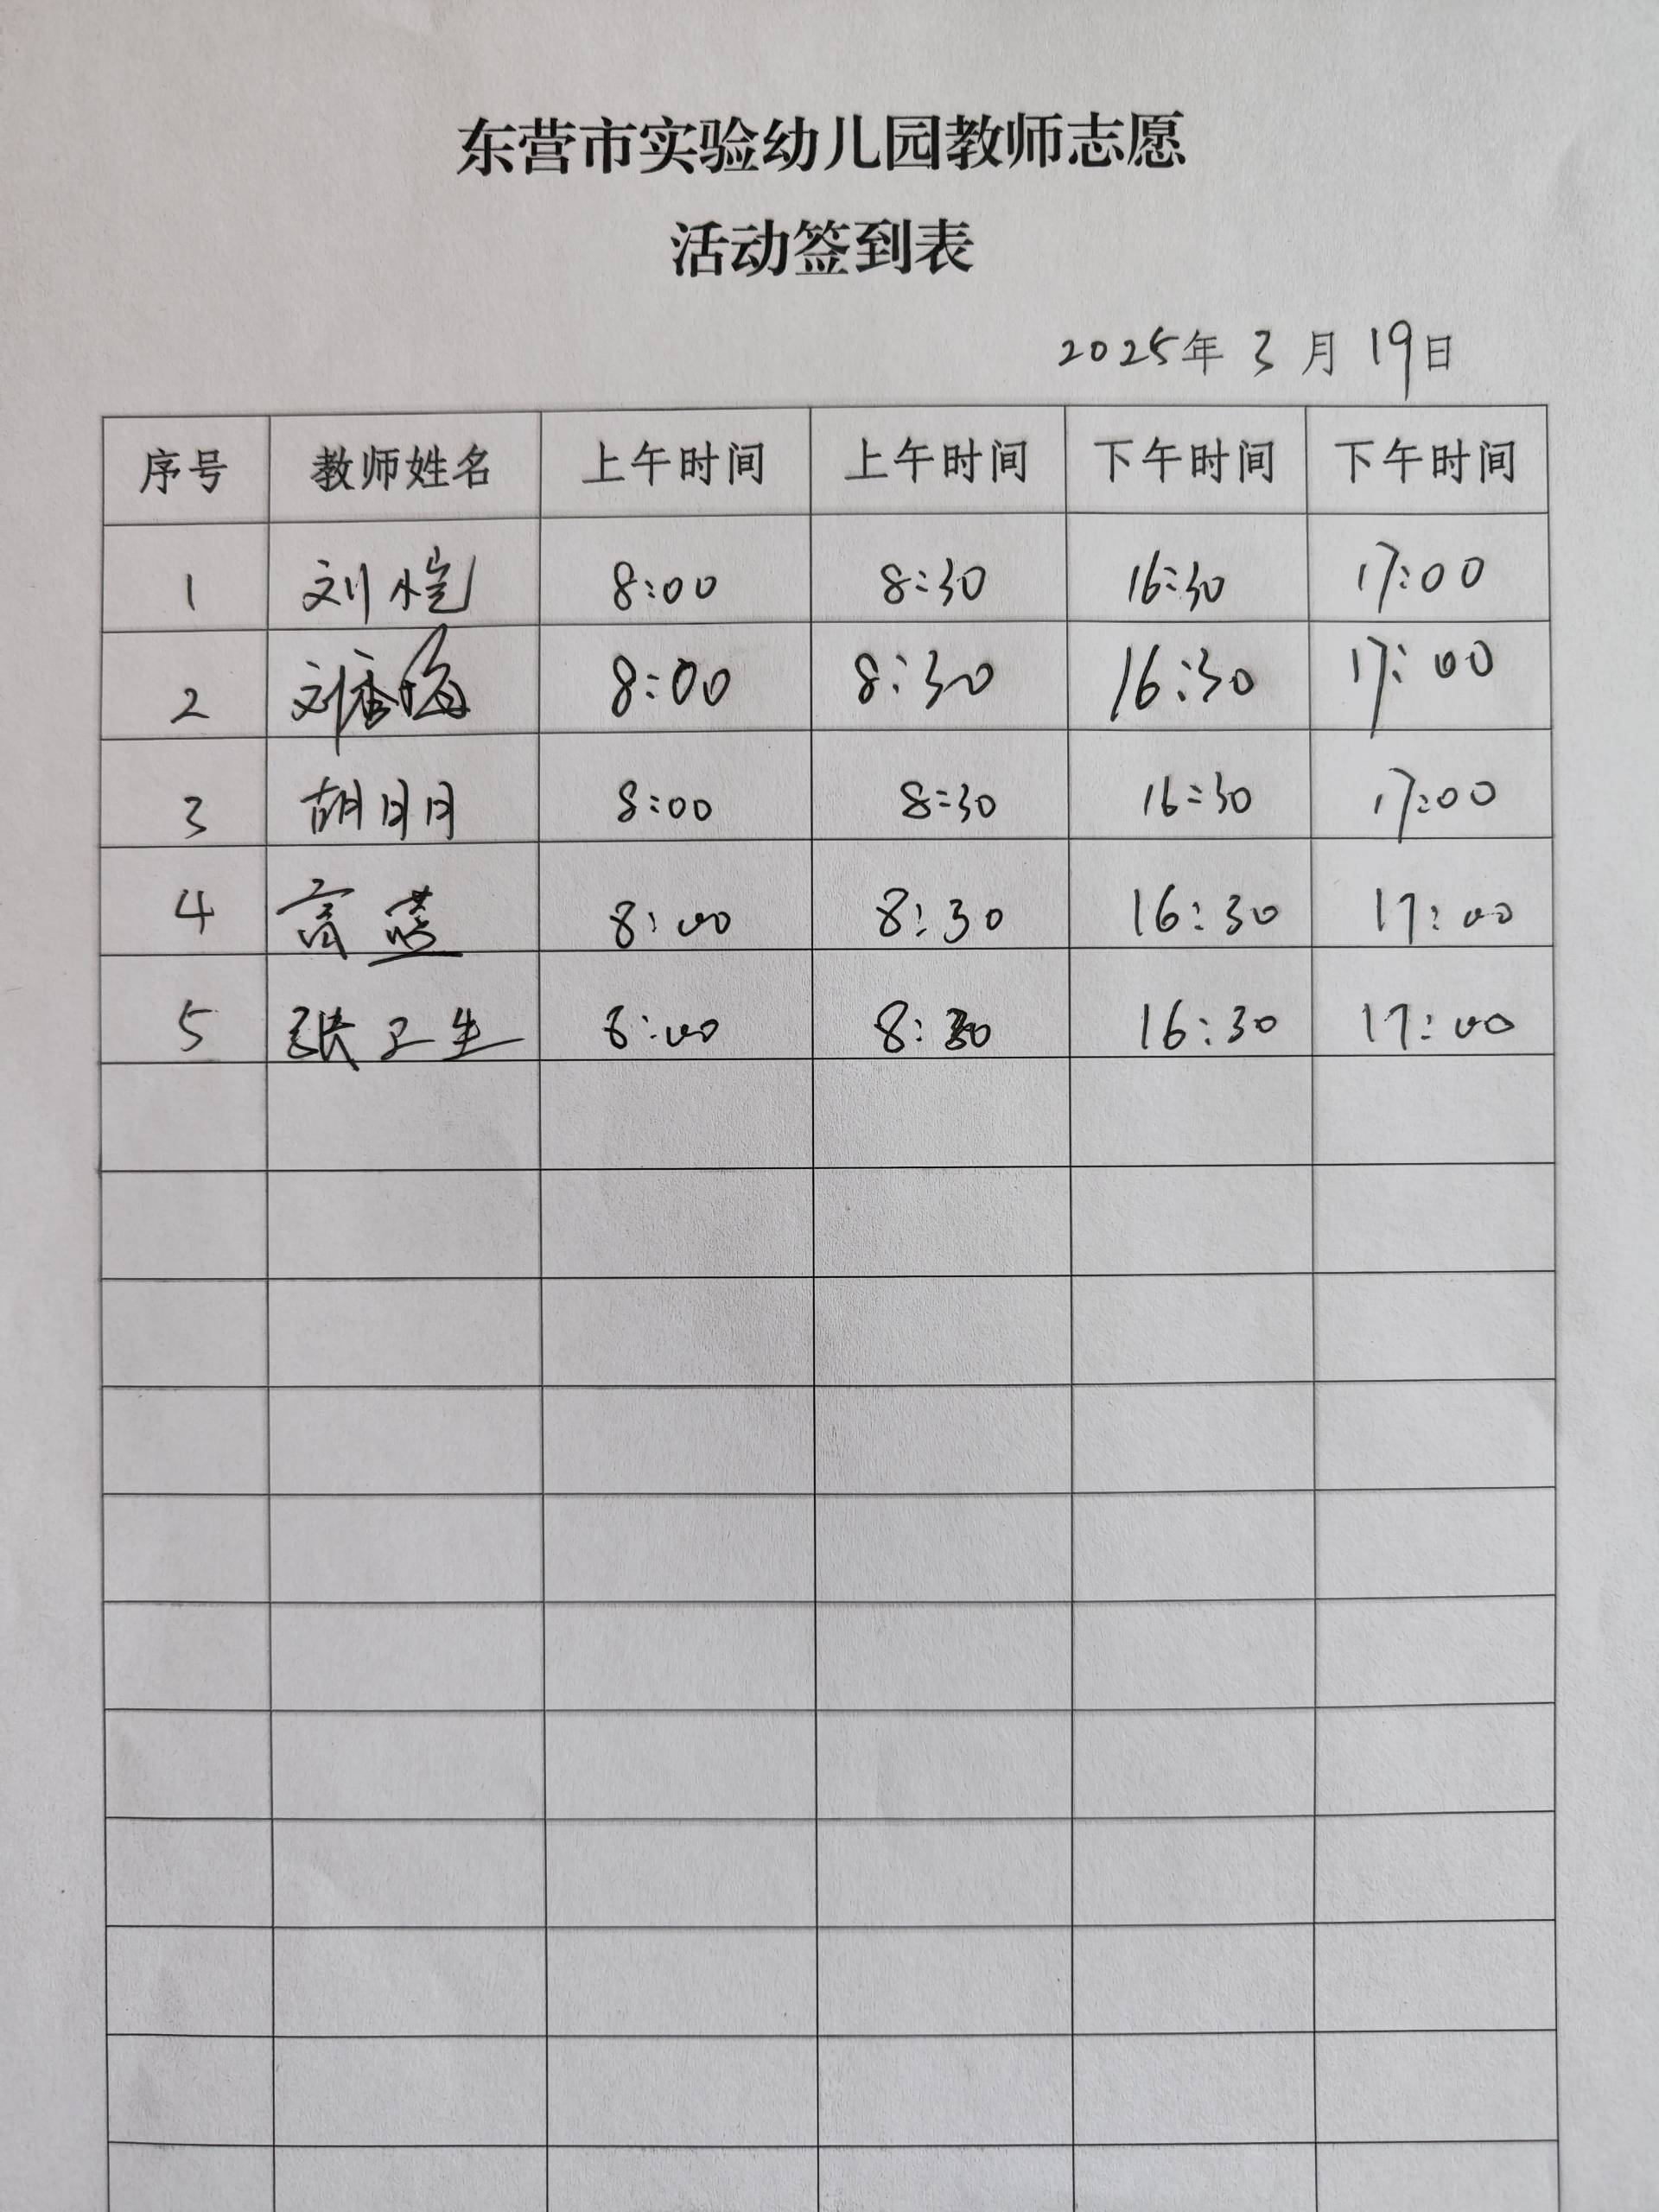 东营市实验幼儿园教师志愿
活动签到表
2025年 3 月 19日
序号 教师姓名 上午时间 上午时间 下午时间 下午时间
1 刘恺 8:00 8:30 16:30 17:00
2 刘 8:00 8:30 16:30 17:00
3 胡月月 8:00 8:30 16:30 17:00
4 高 8:00 8:30 16:30 17:00
5 张卫生 8:00 8:30 16:30 17:00